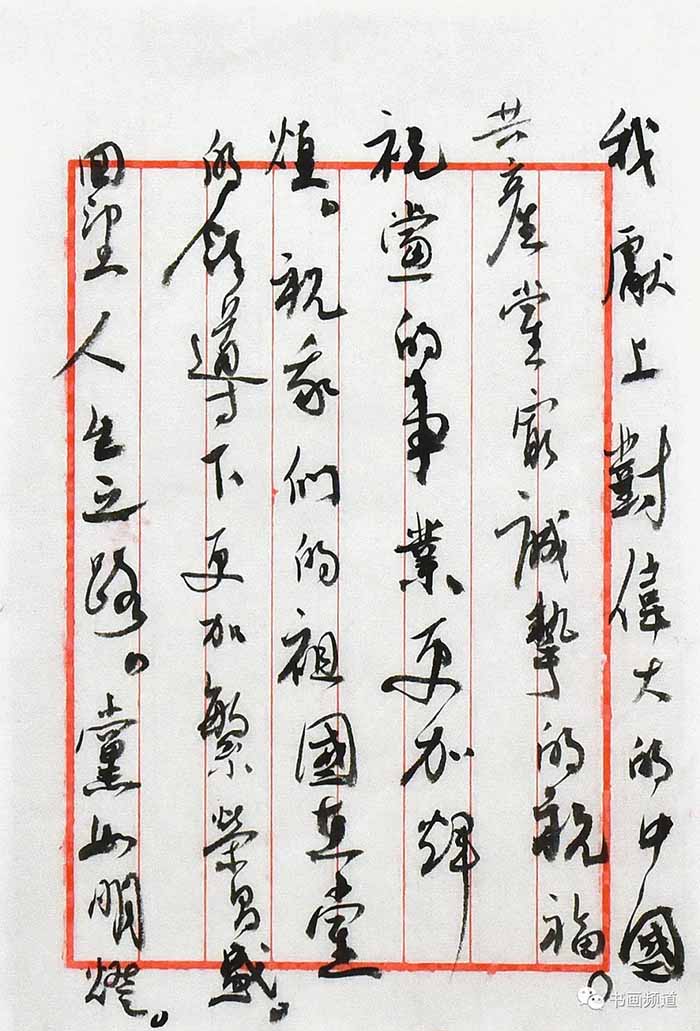 我獻上對偉大的中國
共産黨最誠摯的祝福。
祝黨的事業更加輝
煌。祝我們的祖國在黨
的領導下更加繁榮昌盛。
回望人生之路。黨如明燈。
书画频道